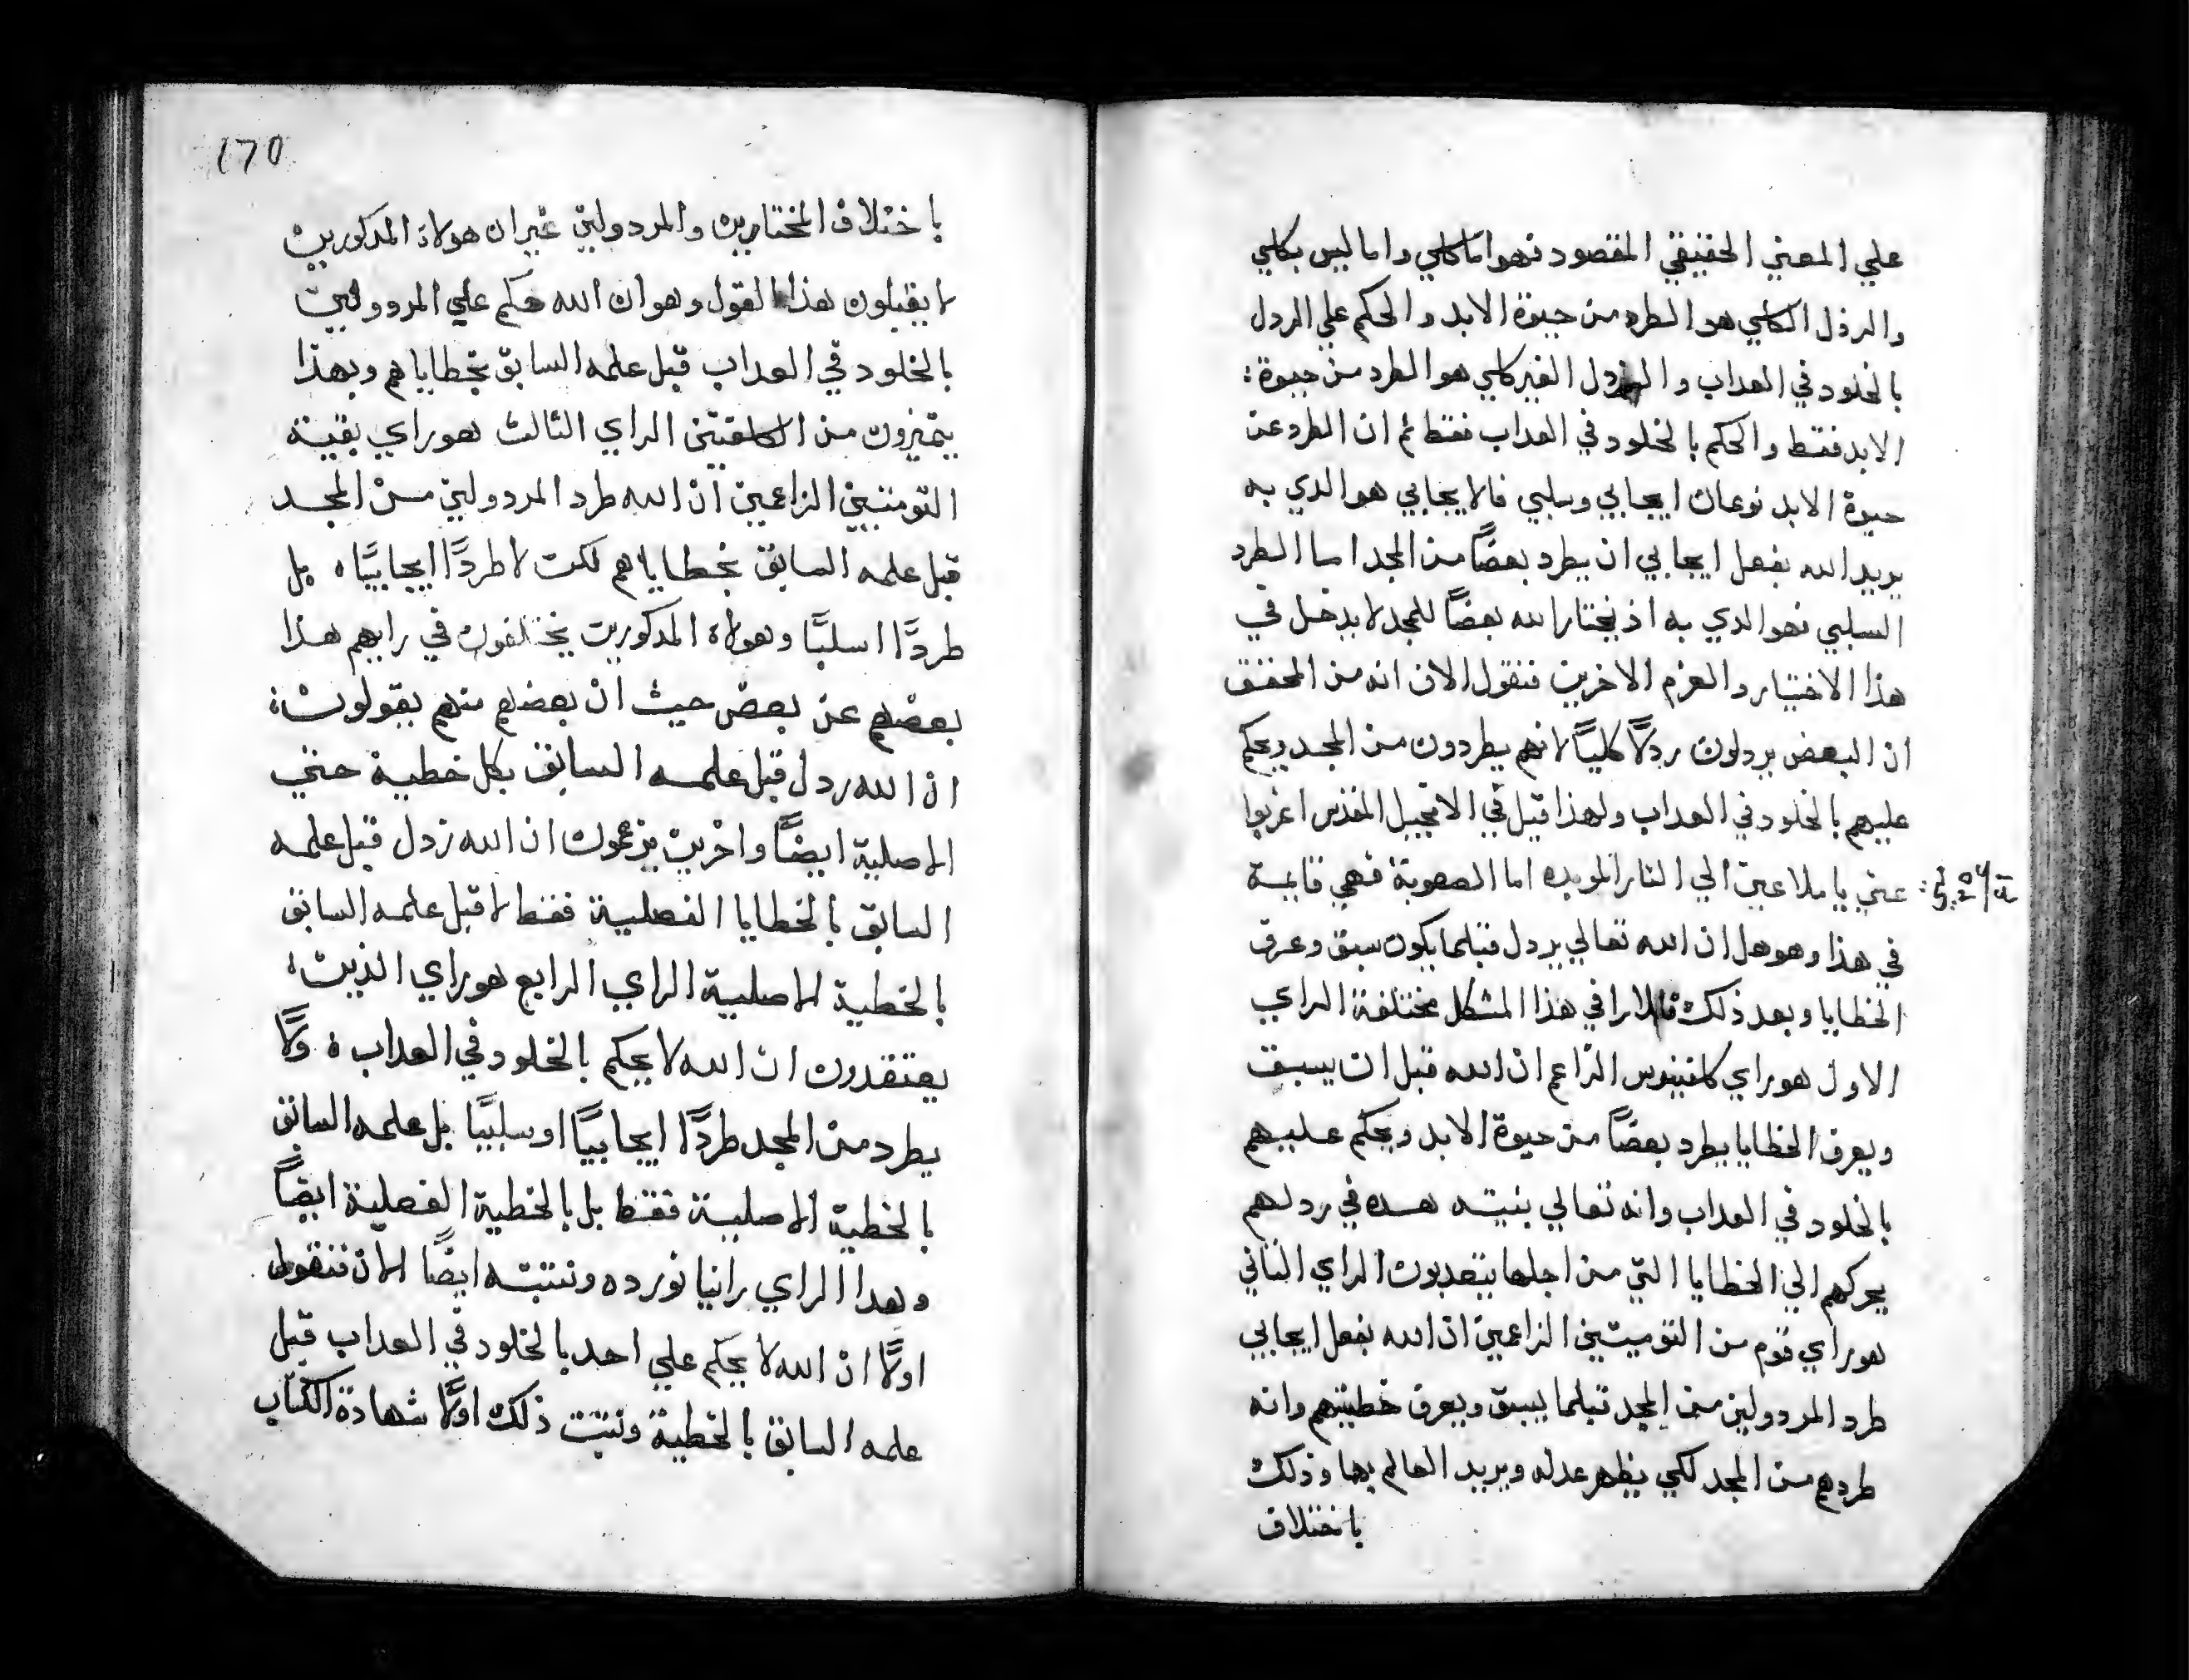 علي المعني الحقيقي المقصود فهو اما كلي واما ليس بكلي
والرذل الكلي هو الطرد من حيوة الابد والحكم علي الردل
بالخلود في العداب والردل الغير كلي هو الطرد من حيوة:
الابد فقط والحكم بالخلود في العداب فقط ثم ان الطرد عن
حيوة الابد نوعان ايجابي وسلبي فالايجابي هو الدي به
يريد الله بفعل ايجابي ان يطرد بعضًا من المجد اما الطرد
السلبي فهو الدي به اذ يختار الله بعضًا للمجد لا يدخل في
هذا الاختيار والعزم الاخرين فنقول الان انه من المحقق
ان البعض يردلون ردلًا كليًا لانهم يطردون من المجد ويحكم
عليهم بالخلود في العداب ولهذا قيل في الانجيل المقدس اغربوا
عني يا ملاعين الي النار الموبده اما الصعوبة فهي قايمة
في هذا وهو هل ان الله تعالي يردل قبلما يكون سبق وعرف
الخطايا وبعد ذلك فالارا في هذا المشكل مختلفة الراي
الاول هو راي كلفينوس الزاعم ان الله قبل ان يسبق
ويعرف الخطايا يطرد بعضًا من حيوة الابد ويحكم عليهم
بالخلود في العداب وانه تعالي بنيته هده في ردلهم
يحركهم الي الخطايا التي من اجلها يتعدبون الراي الثاني
هو راي قوم من التوميتيين الزاعمين ان الله بفعل ايجابي
طرد المردولين من المجد قبلما يسبق ويعرف خطيتهم وانه
طردهم من المجد لكي يظهر عدله ويريد العالم بها وذلك
باختلاف
١٧٥
باختلاف المختارين والمردولين غير ان هولاء المدكورين
لا يقبلون هذا القول وهو ان الله حكم علي المردولين
بالخلود في العداب قبل علمه السابق بخطاياهم وبهذا
يتميزون من الكلفينيين الراي الثالث هو راي بقية
التومتيين الزاعمين ان الله طرد المردولين من المجد
قبل علمه السابق بخطاياهم لكن لا طردًا ايجابيًا بل
طردًا سلبيًا وهولاء المدكورين يختلفون في رايهم هذا
بعضهم عن بعض حيث ان بعضهم منهم يقولون:
ان الله ردل قبل علمه السابق بكل خطية حتي
الاصلية ايضًا واخرين يزعمون ان الله ردل قبل علمه
السابق بالخطايا الفعلية فقط لا قبل علمه السابق
بالخطية الاصلية الراي الرابع هو راي الذين
يعتقدون ان الله لا يحكم بالخلود في العداب ولا
يطرد من المجد طردًا ايجابيًا او سلبيًا بل علمه السابق
بالخطية الاصلية فقط بل بالخطية الفعلية ايضًا
وهدا الراي راينا نورده ونتبته ايضًا الان فنقول
اولًا ان الله لا يحكم علي احد بالخلود في العداب قبل
علمه السابق بالخطية ونتبت ذلك اولًا شهادة الكتاب